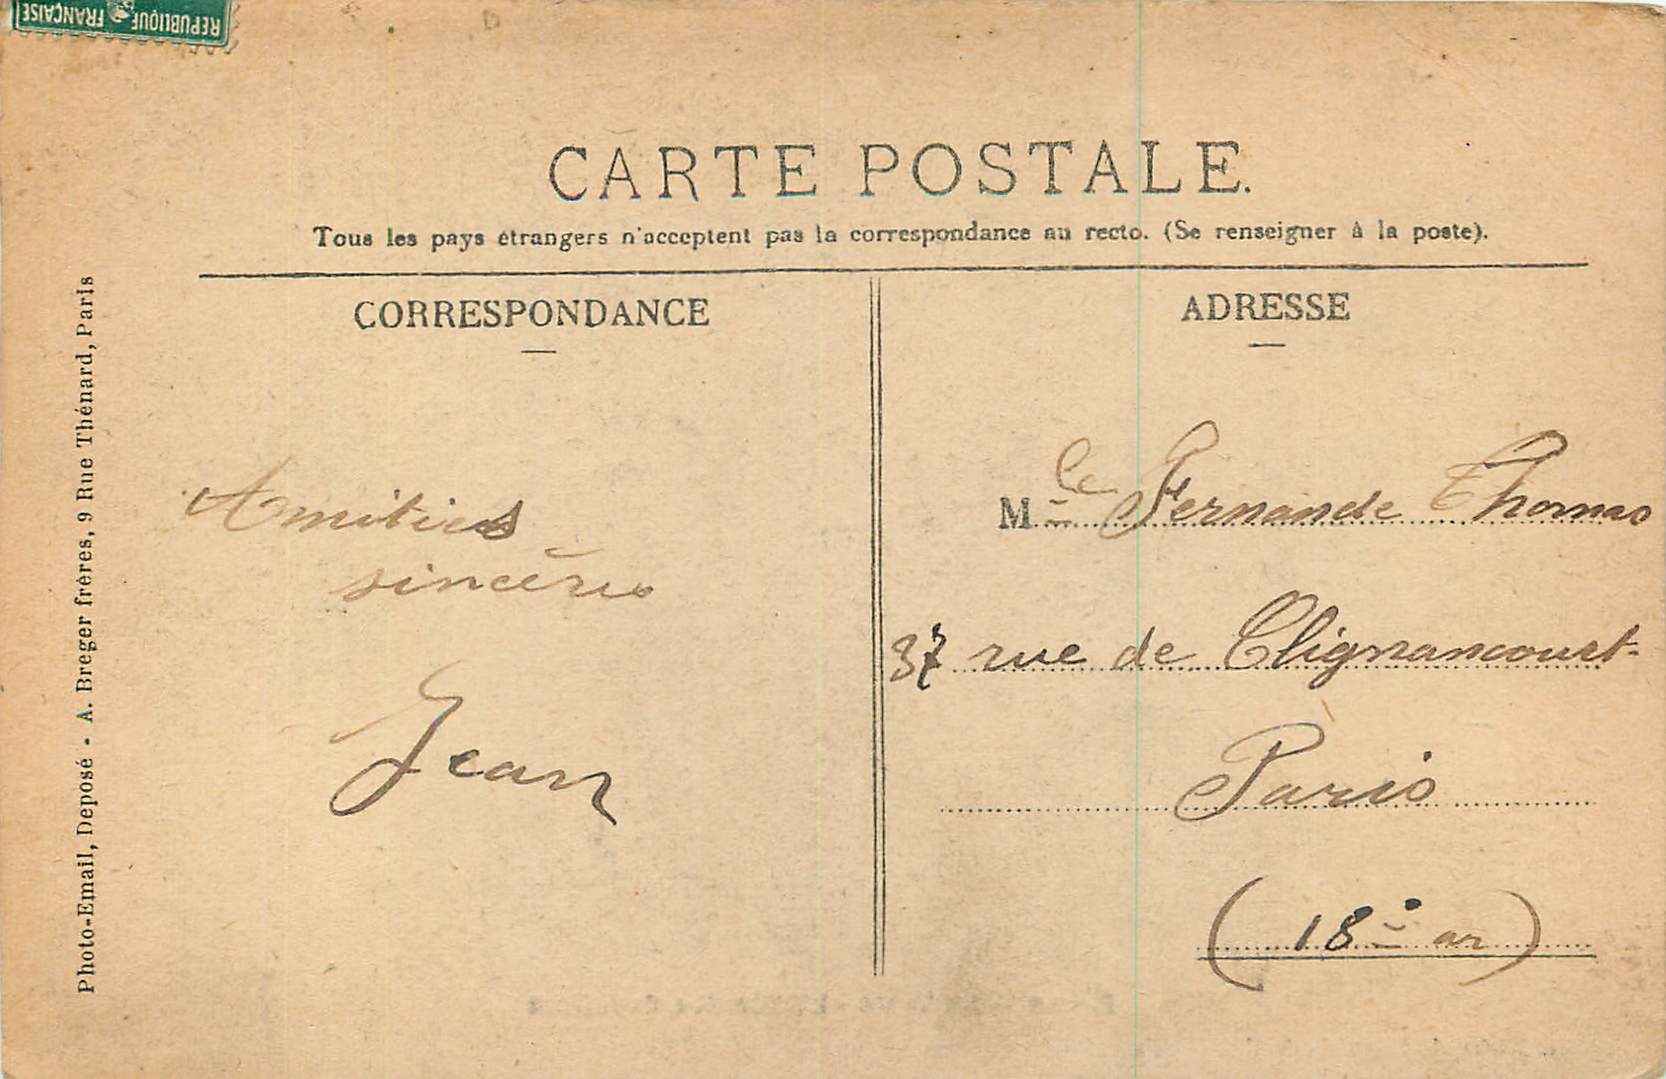 RÉPUBLIQUE FRANÇAISE
CARTE POSTALE.
Tous les pays étrangers n'acceptent pas la correspondance au recto. (Se renseigner à la poste).
CORRESPONDANCE
Amitiés
sincères
Jean
ADRESSE
Mlle Fernande Thomas
37 rue de Clignancourt
Paris
(18e ar)
Photo-Email, Deposé - A. Breger frères, 9 Rue Thénard, Paris